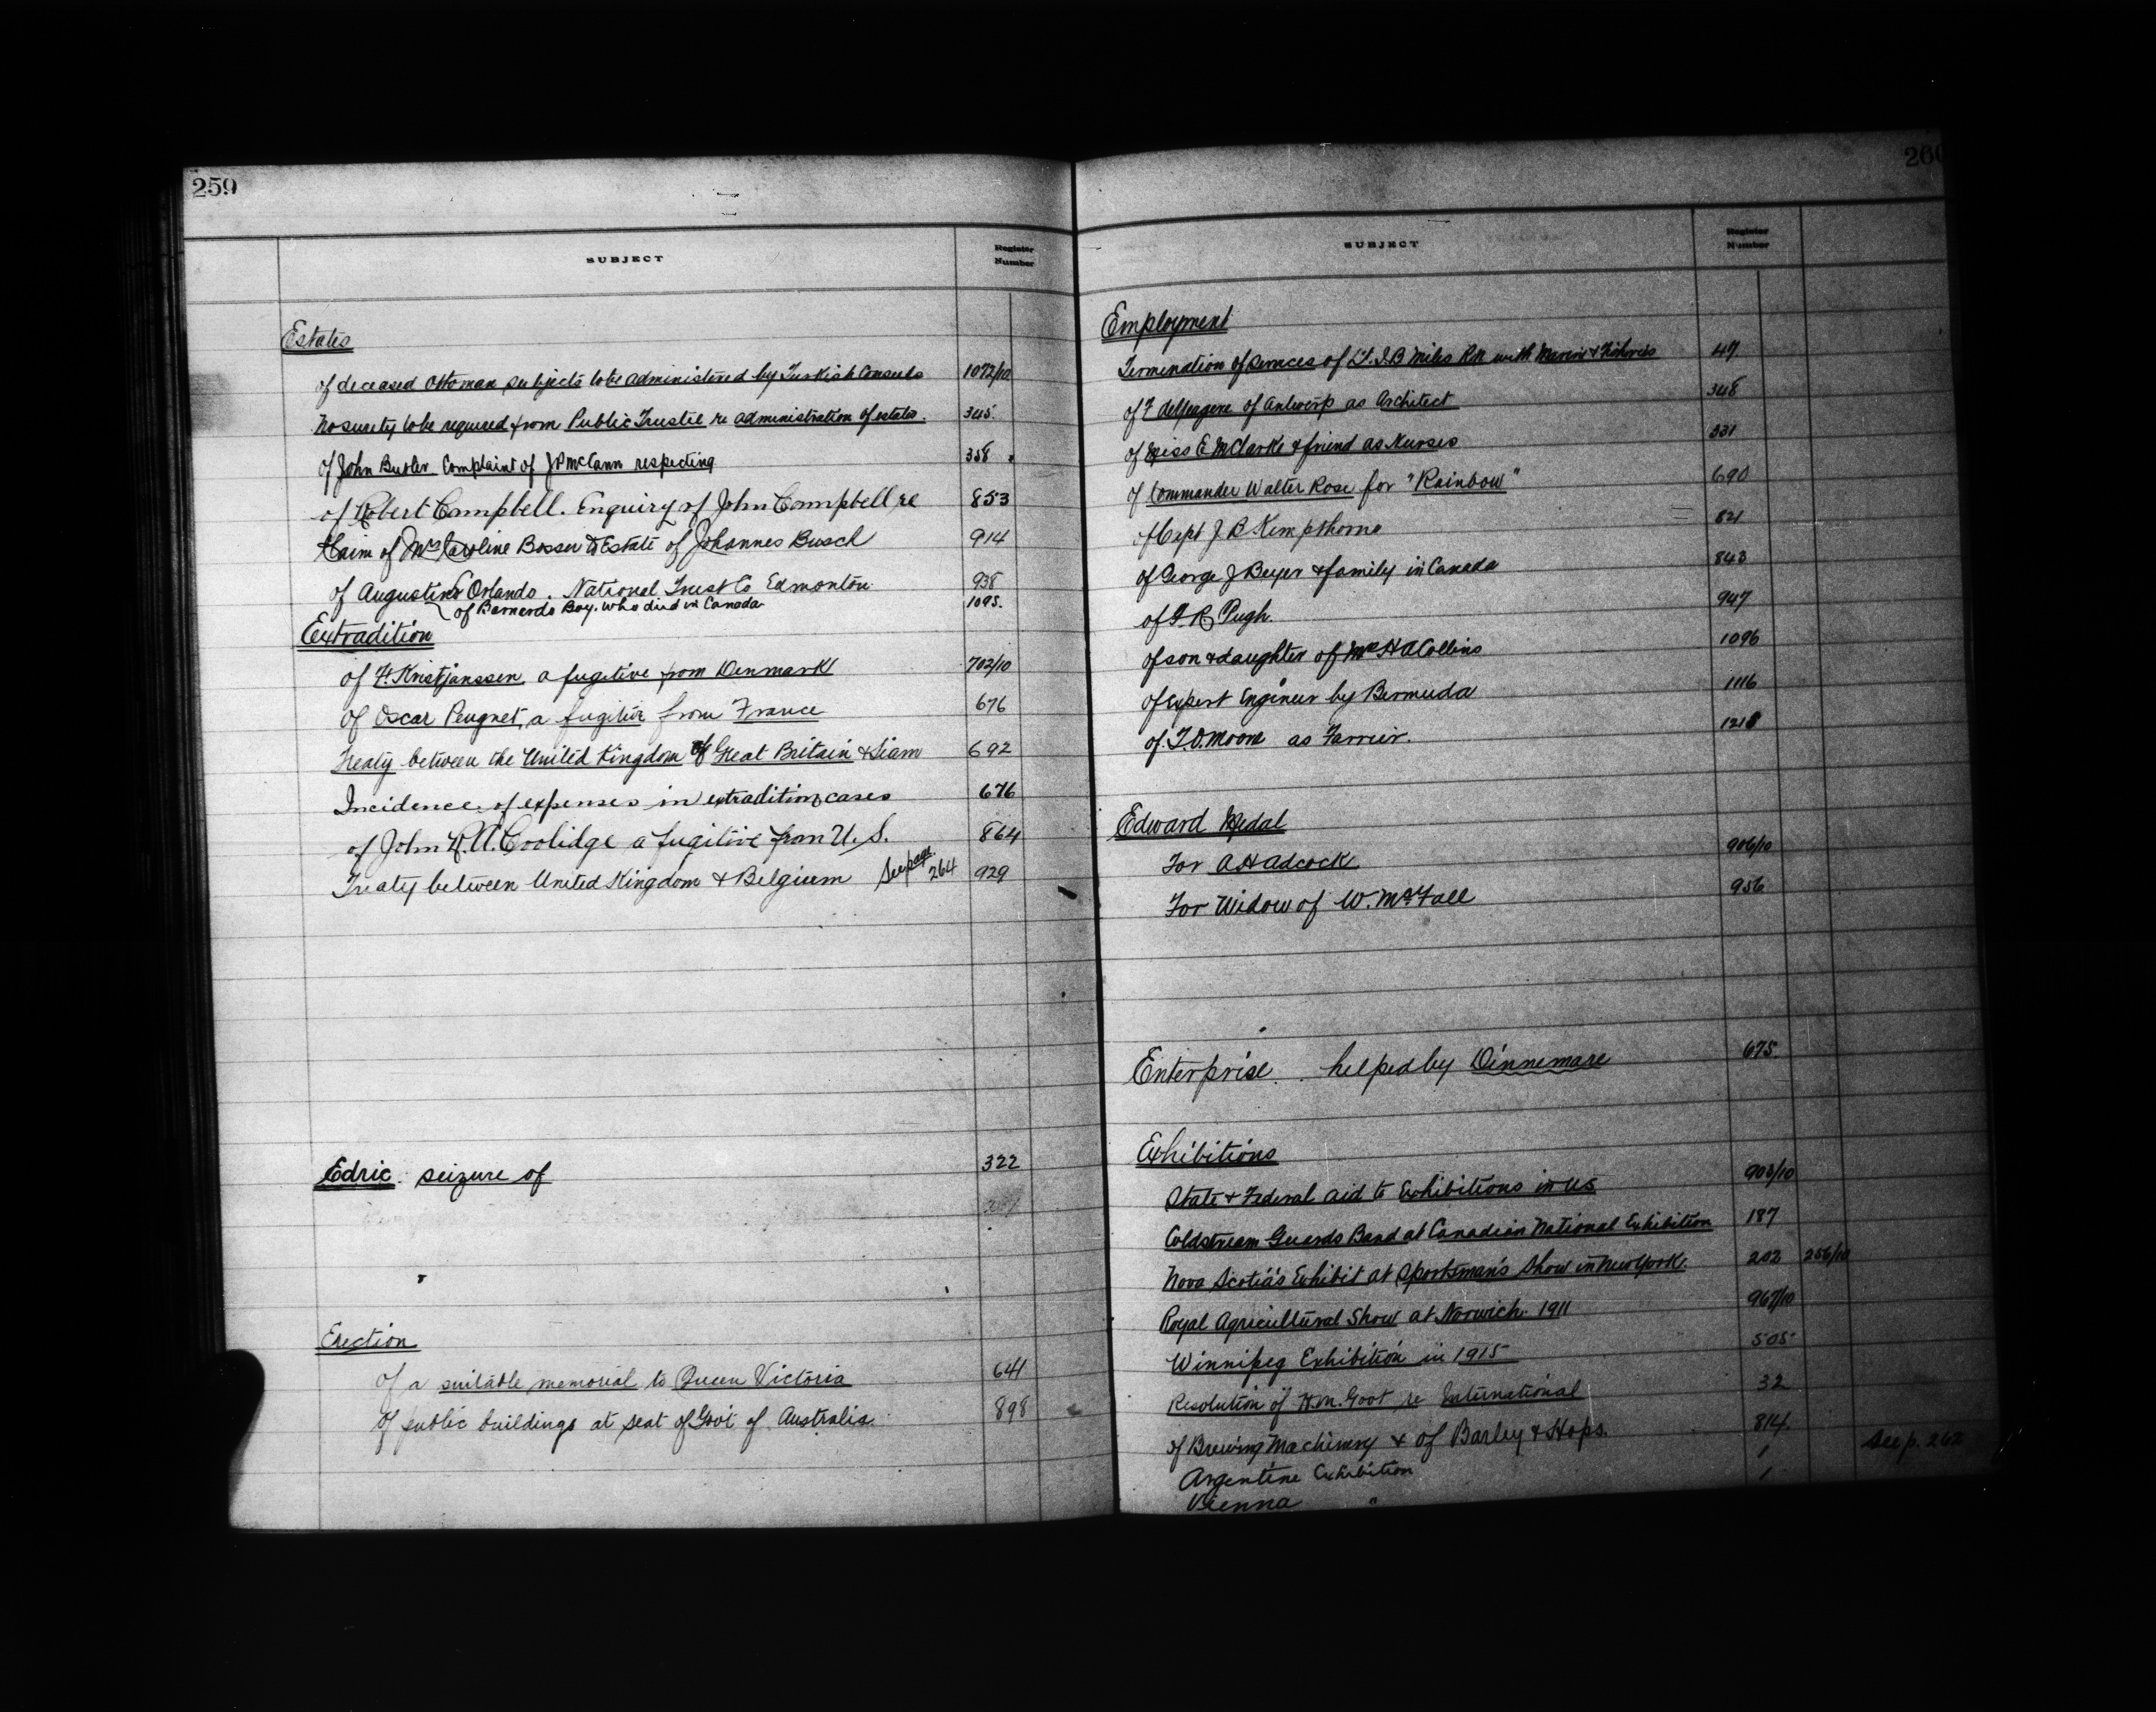 259
SUBJECT
Register Number
Estates
of deceased Ottoman subjects to be administered by Turkish Consuls 1072/10
No surety to be required from Public Trustee re administration of estates. 345.
of John Butler Complaint of J P McCann respecting 358
of Robert Campbell. Enquiry of John Campbell re 853
Claim of Mrs Caroline Bosser to Estate of Johannes Busch 914
of Augustino Orlando. National Trust Co Edmonton 938
of Barnardo Boy. who died in Canada 1095.
Extradition
of F. Kristjanssen, a fugitive from Denmark 702/10
of Oscar Peugnet, a fugitive from France 676
Treaty between the United Kingdom of Great Britain & Siam 692
Incidence of expenses in extradition cases 676
of John R. A. Coolidge a fugitive from U.S. 864
Treaty between United Kingdom & Belgium See page 264 929
Edric. seizure of 322
Erection
of a suitable memorial to Queen Victoria 641
of public buildings at seat of Govt of Australia. 898
260
SUBJECT
Register Number
Employment
Termination of services of Lt. J.B Miles RN with Marine & Fisheries 47
of F of Antwerp as Architect 348
of Miss E M Clarke & friend as Nurses 331
of Commander Walter Rose for "Rainbow" 690
of Capt J B Kempthorne 821
of George J Beyer & family in Canada 843
of F. R. Pugh. 947
of son & daughter of H A Collins 1096
of expert Engineer by Bermuda 1116
of T.D. Moore as Farrier. 1218
Edward Medal
For A H Adcock 906/10
For Widow of W. McFall 956
Enterprise. helped by Dinnemare 675.
Exhibitions
State & Federal aid to Exhibitions in US 903/10
Coldstream Guards Band at Canadian National Exhibition 187
Nova Scotia's Exhibit at Sportsman's Show in New York. 202 256/10
Royal Agricultural Show at Norwich. 1911 967/10
Winnipeg Exhibition in 1915 505
Resolution of H.M. Govt re International 32
of Brewing Machinery & of Barley & Hops. 814.
Argentine Exhibition 1 See p. 262
Vienna " 1